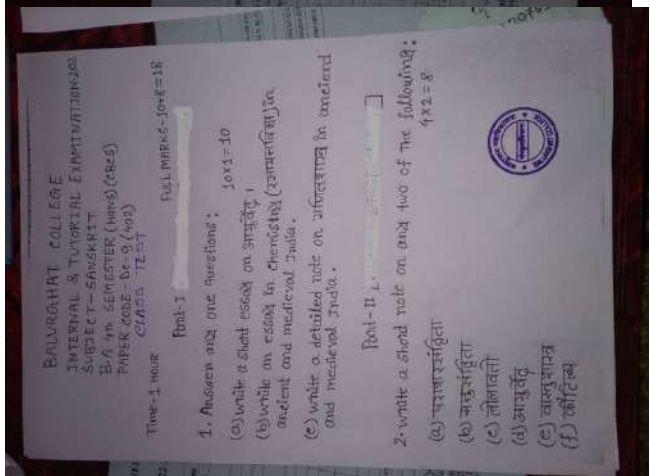 BALURGHAT COLLEGE
INTERNAL & TUTORIAL EXAMINATION-202
SUBJECT - SANSKRIT
B.A 4th SEMESTER (HONS) (CBCS)
PAPER CODE - DC-9 (402)
CLASS TEST
Time-1 HOUR FULL MARKS-10+8=18
Part-I
1. Answer any one questions:
10x1=10
(a) write a short essay on आयुर्वेद ।
(b) write an essay in chemistry (रसायनविद्या) in
ancient and medieval India.
(c) write a detailed note on गणितशास्त्र in ancient
and medieval India.
Part-II
2. write a short note on any two of the following:
4x2=8
(a) पराशरसंहिता
(b) भृगुसंहिता
(c) लीलावती
(d) आयुर्वेद
(e) वास्तुशास्त्र
(f) कौटिल्य